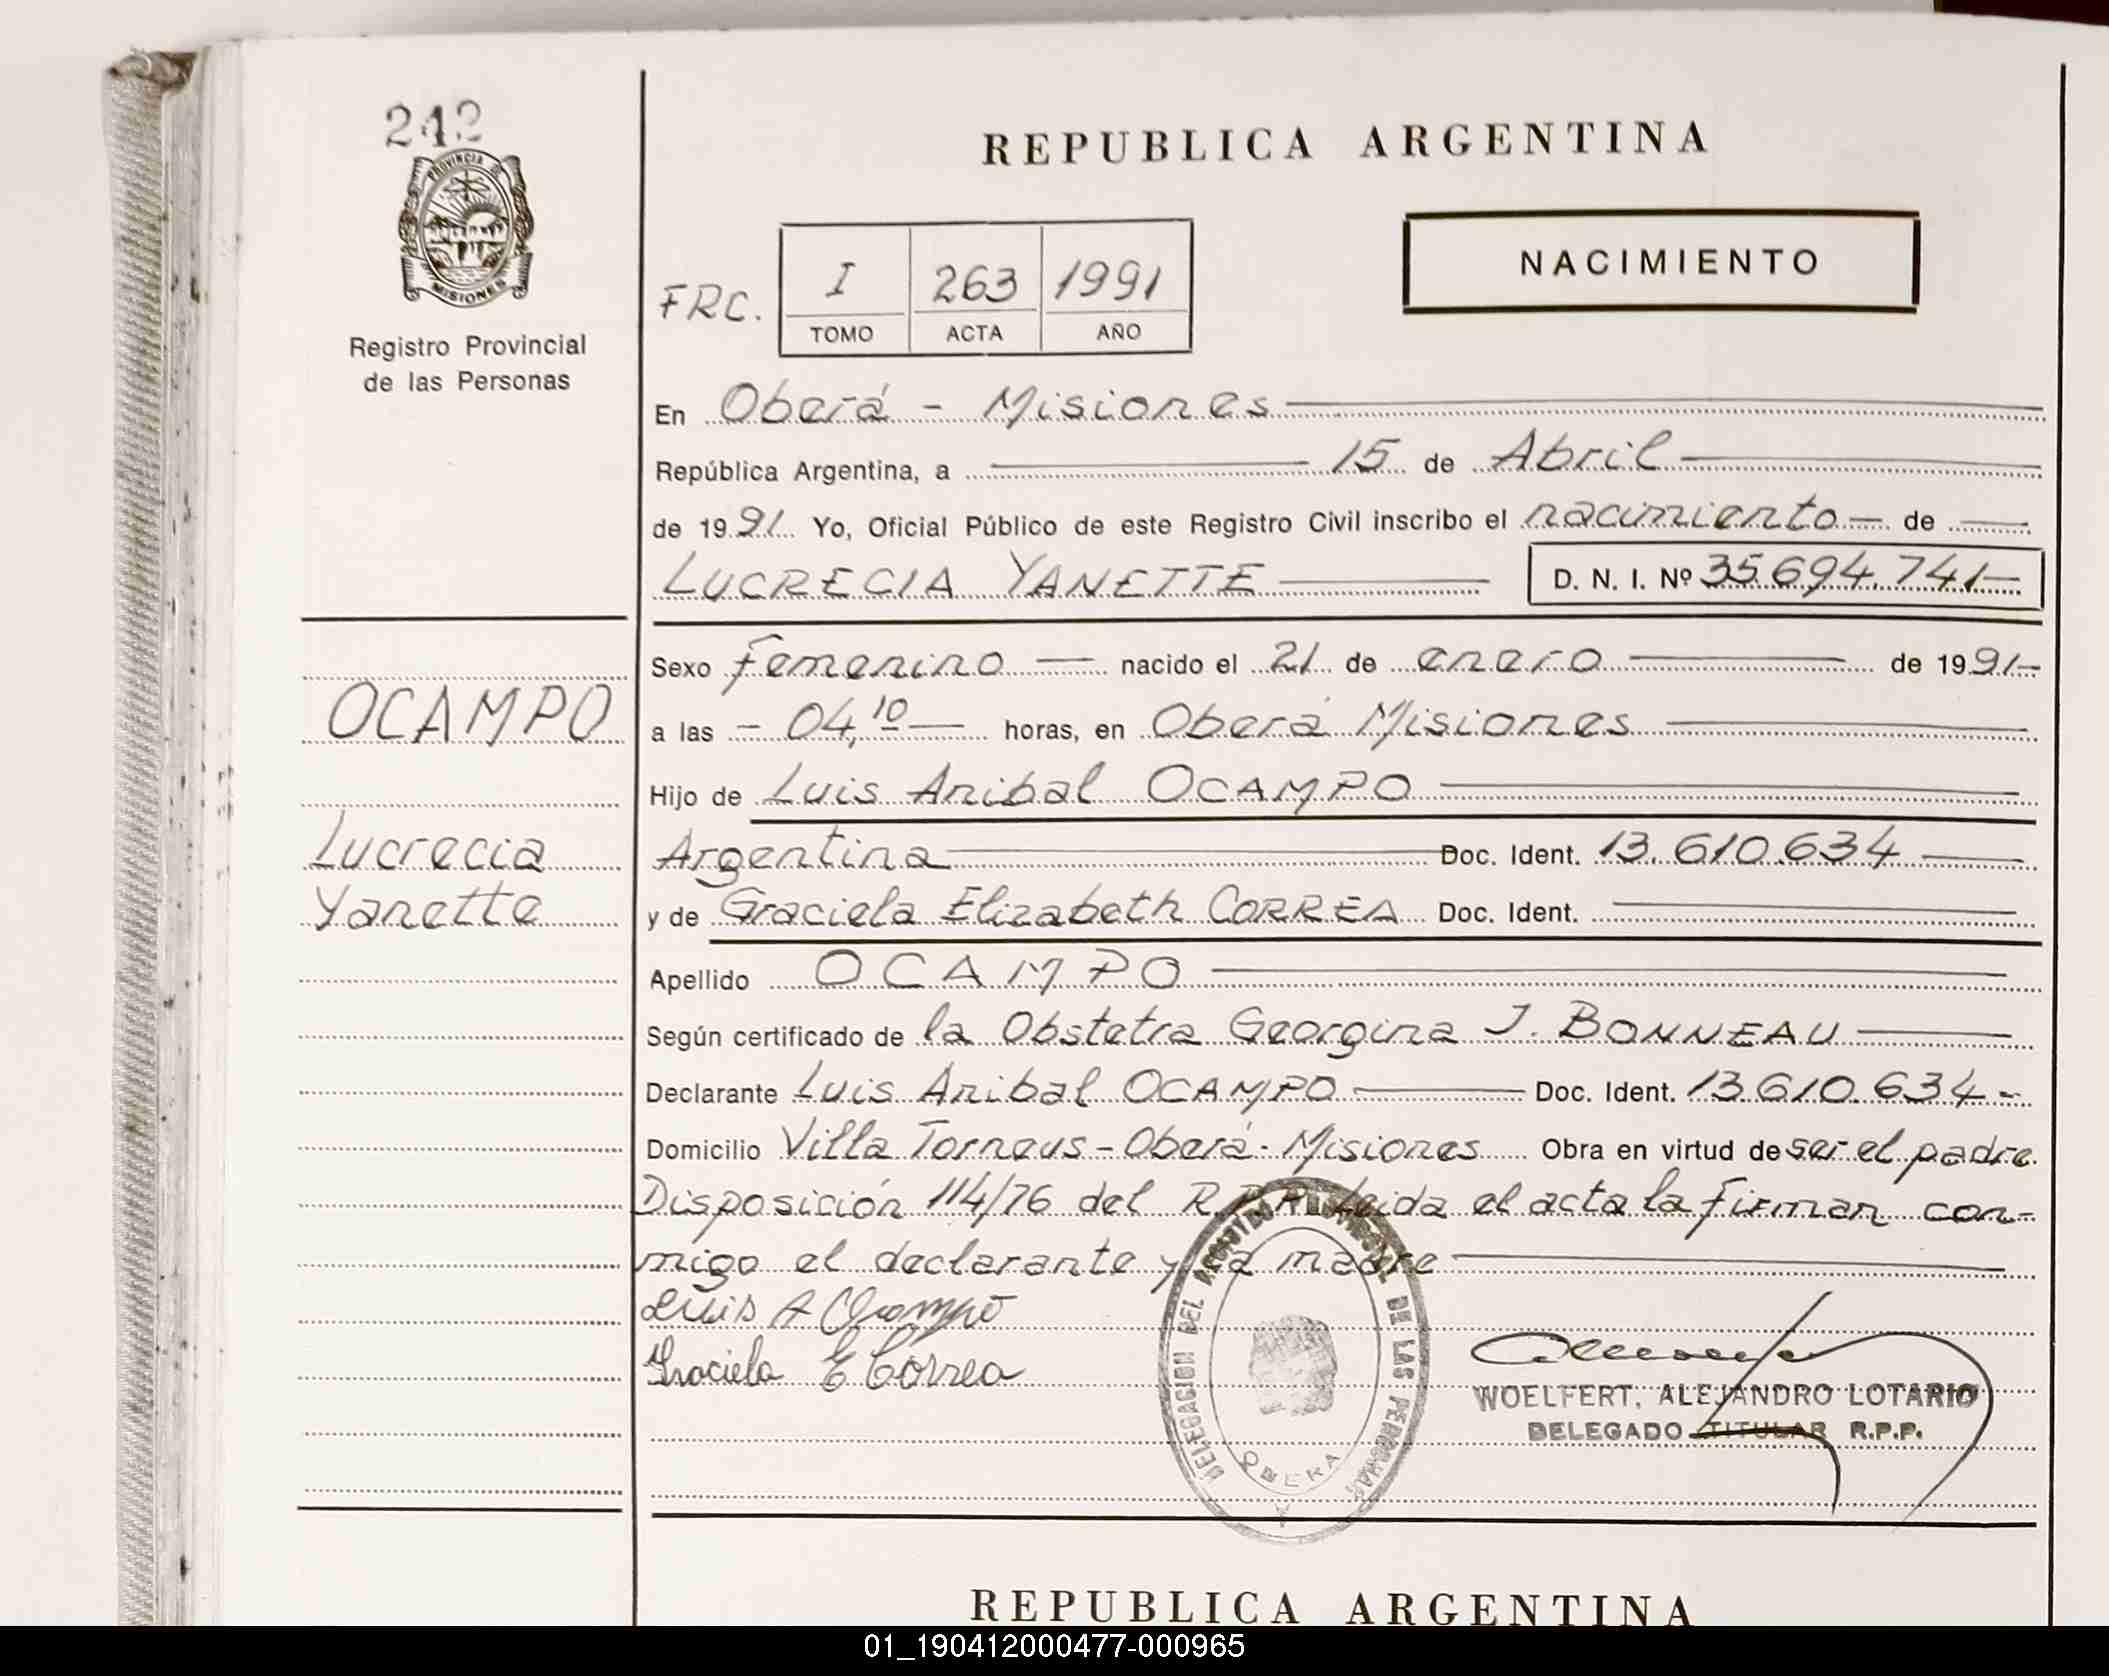 242
PROVINCIA DE
MISIONES
Registro Provincial
de las Personas
REPUBLICA ARGENTINA
NACIMIENTO
FRC.
I 263 1991
TOMO ACTA AÑO
En Oberá - Misiones
República Argentina, a 15 de Abril
de 1991 Yo, Oficial Público de este Registro Civil inscribo el nacimiento de
LUCRECIA YANETTE D. N. I. Nº 35.694.741
OCAMPO
Lucrecia
Yanette
Sexo Femenino nacido el 21 de enero de 1991
a las 04,10 horas, en Oberá Misiones
Hijo de Luis Anibal OCAMPO
Argentina Doc. Ident. 13.610.634
y de Graciela Elizabeth CORREA Doc. Ident.
Apellido OCAMPO
Según certificado de la Obstetra Georgina J. BONNEAU
Declarante Luis Anibal OCAMPO Doc. Ident. 13.610.634
Domicilio Villa Torneus - Oberá - Misiones Obra en virtud de ser el padre
Disposición 114/76 del R.P.P. Leida el acta la firman con-
migo el declarante y la madre
Luis A Ocampo
Graciela E Correa
DELEGACION DEL REGISTRO PROVINCIAL DE LAS PERSONAS
OBERA
WOELFERT, ALEJANDRO LOTARIO
DELEGADO TITULAR R.P.P.
REPUBLICA ARGENTINA
01_190412000477-000965